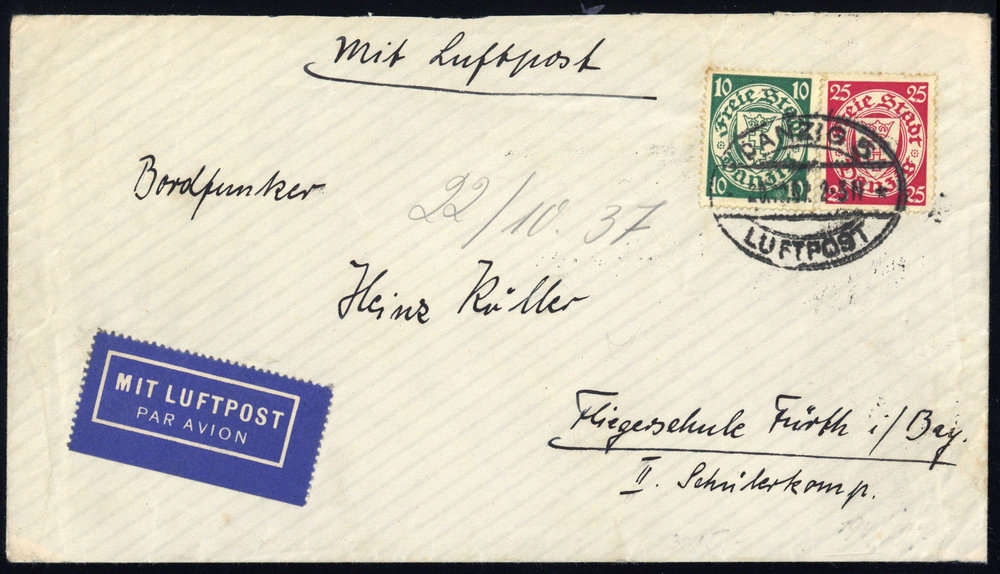 Mit Luftpost
10 10
Freie Stadt
Danzig
10 10
25 25
Freie Stadt
Danzig
25 25
DANZIG 5
LUFTPOST
Bordfunker
22/10.37.
Heinz Köller
MIT LUFTPOST
PAR AVION
Fliegerschule Fürth i/Bay.
II. Schülerkomp.